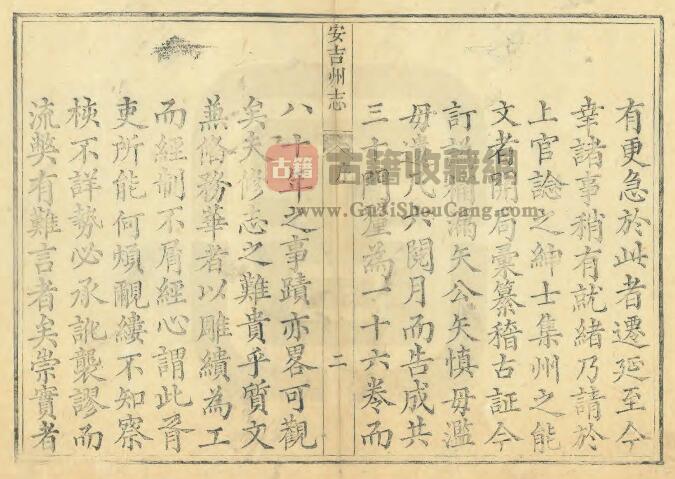 有更急於此者遷延至今
幸諸事稍有就緒乃請於
上官諗之紳士集州之能
文者開局彙纂稽古証今
訂訛補漏矢公矢慎毋濫
毋遺凡六閱月而告成共
三十門釐為一十六卷而
安吉州志
二
八十年之事蹟亦畧可觀
矣夫修志之難貴乎質文
兼俻務華者以雕繢為工
而經制不屑經心謂此胥
吏所能何煩覼縷不知察
核不詳勢必承訛襲謬而
流弊有難言者矣崇實者
古籍
古籍收藏網
www.GuJiShouCang.com